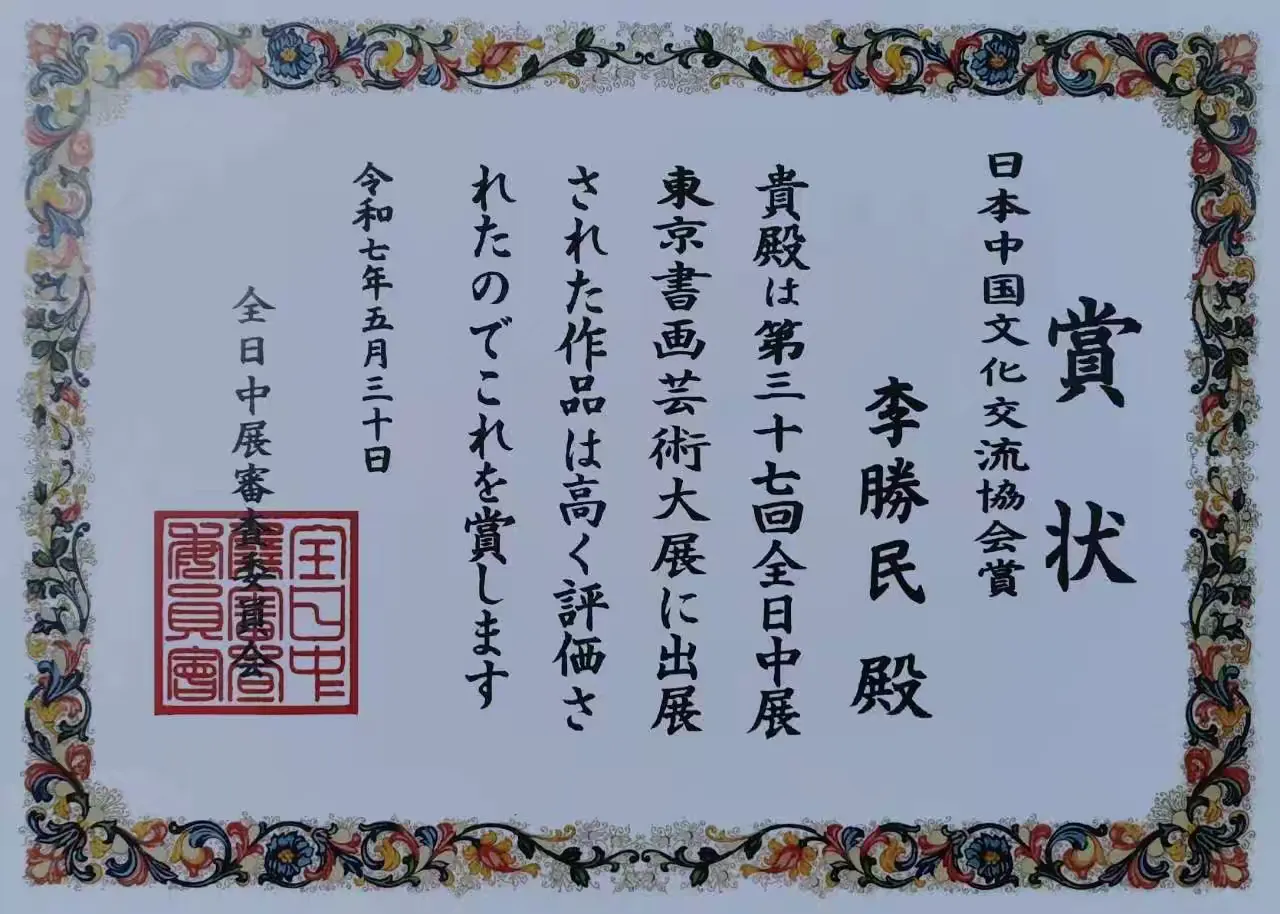 賞状
日本中国文化交流協会賞
李勝民 殿
貴殿は第三十七回全日中展
東京書画芸術大展に出展
された作品は高く評価さ
れたのでこれを賞します
令和七年五月三十日
全日中展審査委員会
全日中
展審査
委員會